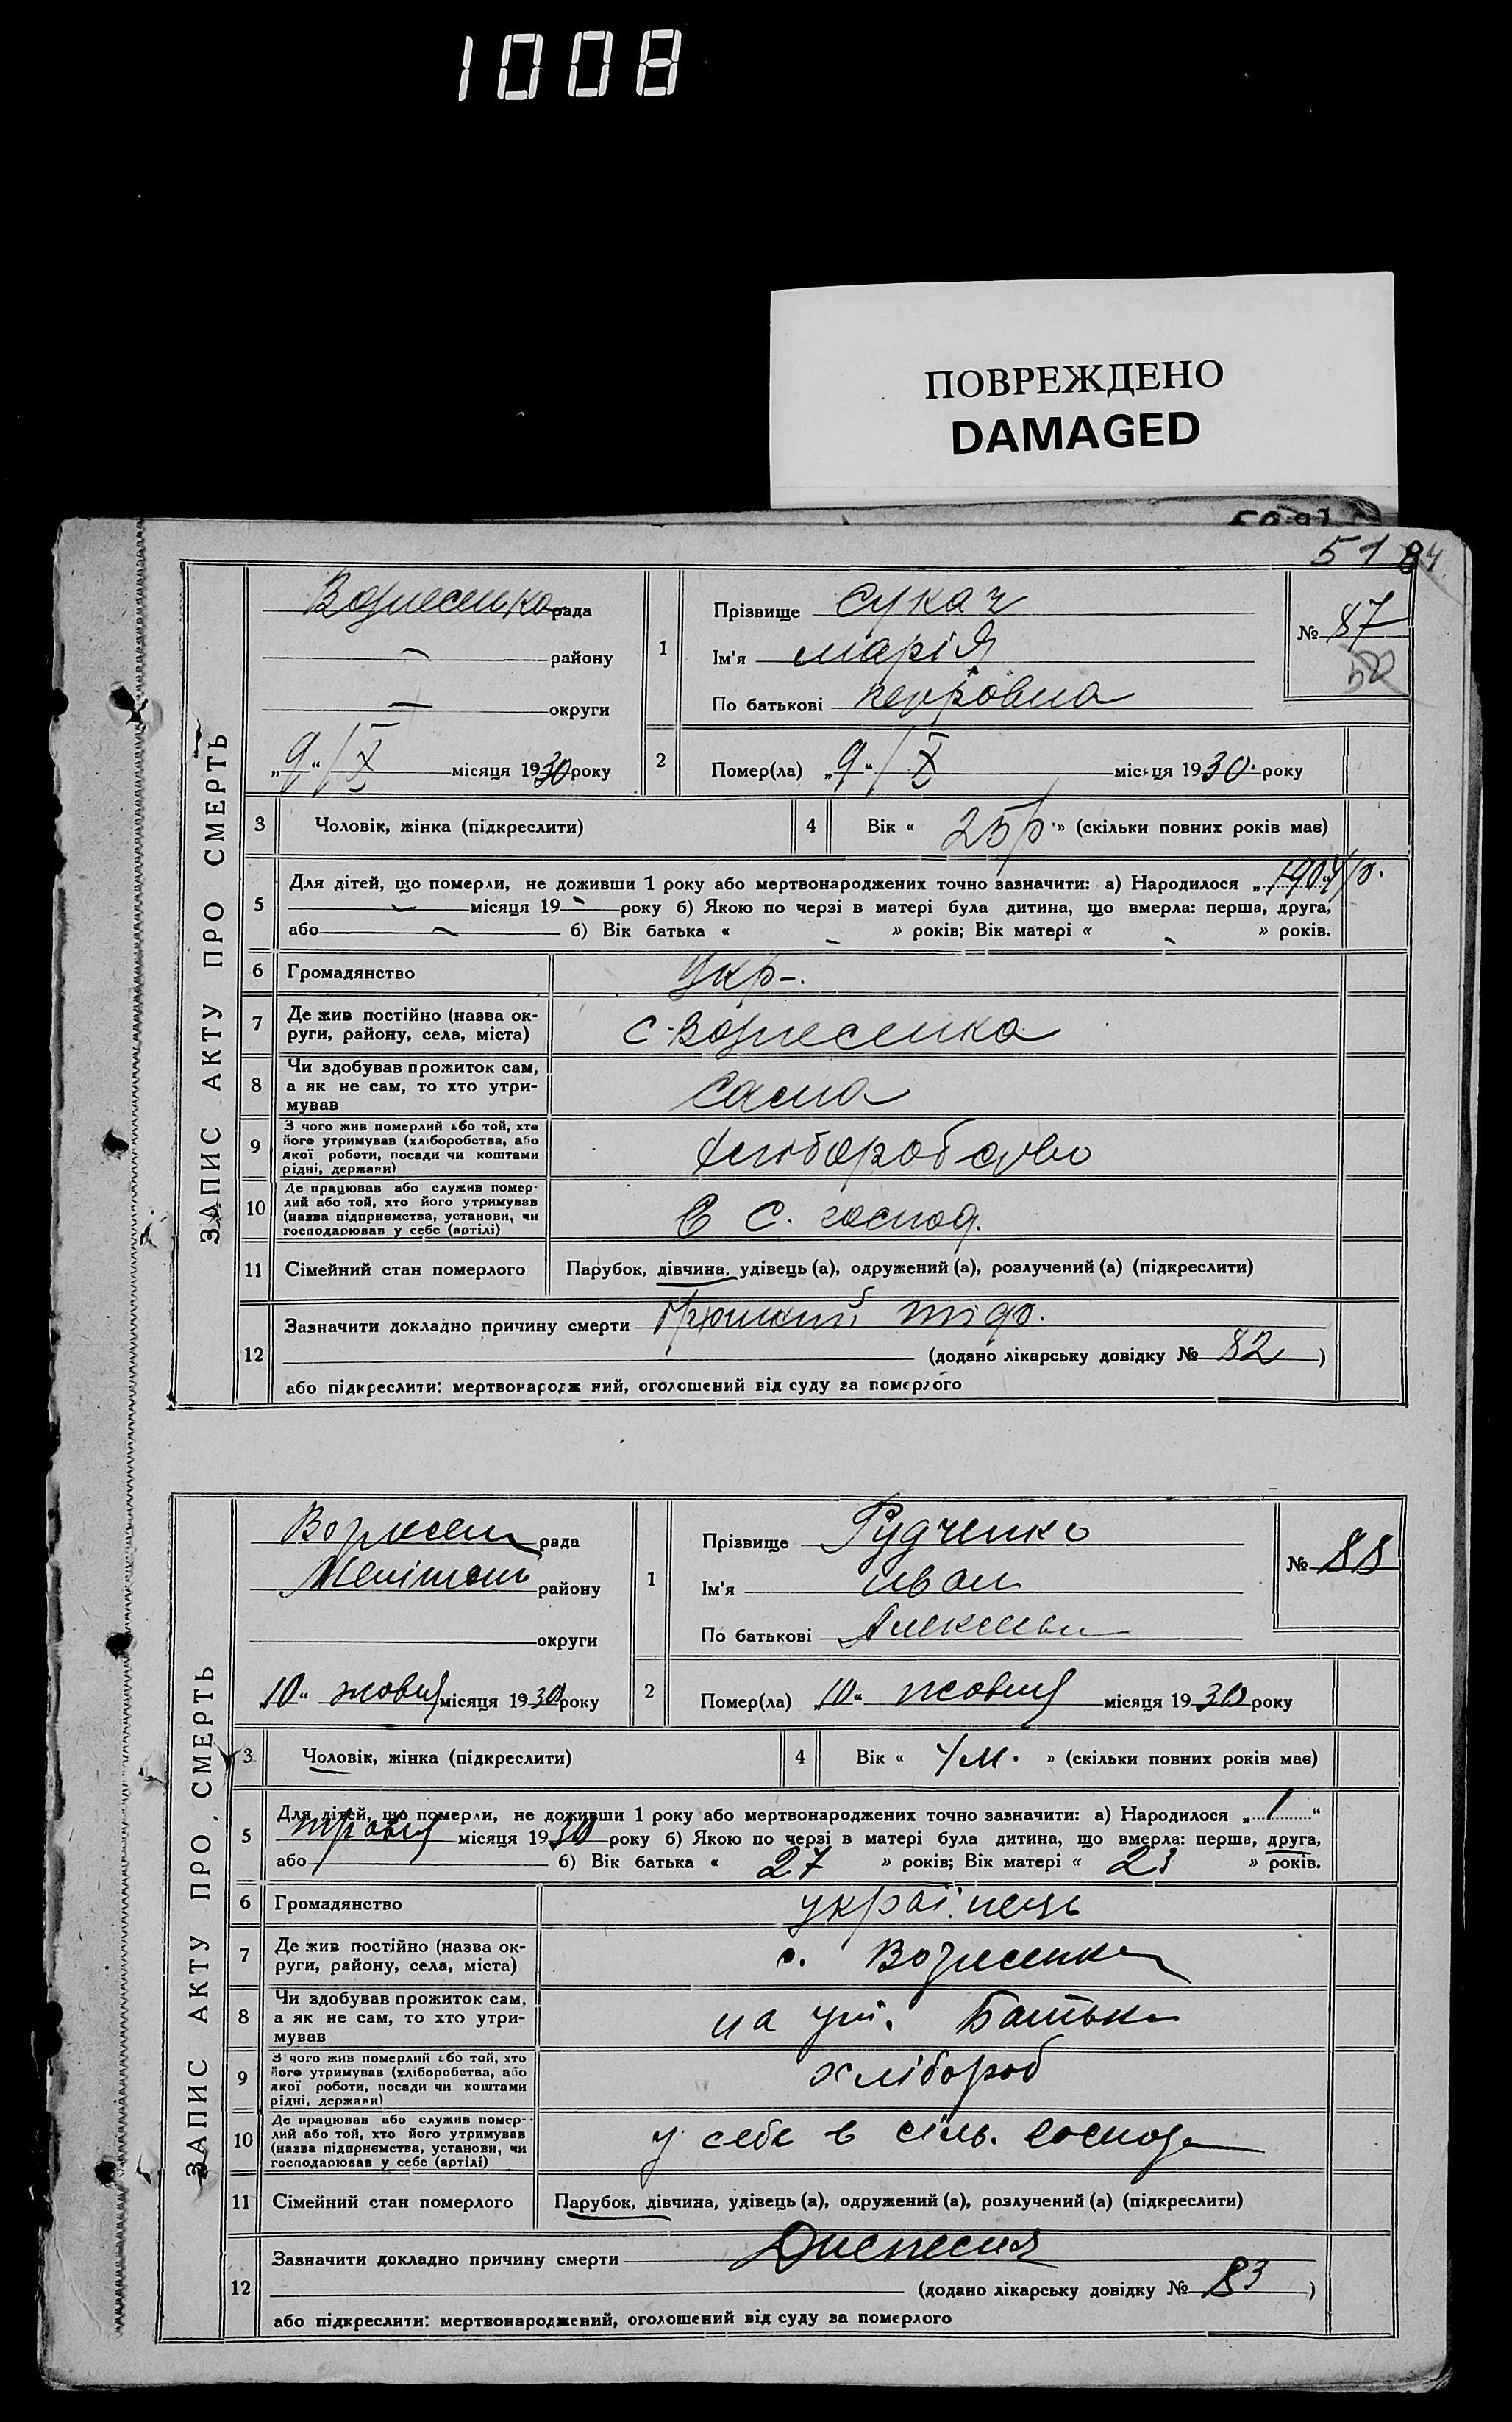 1008
ПОВРЕЖДЕНО
DAMAGED
51 84
ЗАПИС АКТУ ПРО СМЕРТЬ
Вознесенко рада
— району
— округи
„9“/X місяця 1930 року
1
Прізвище Сукач
Ім'я марія
По батькові петровна
№ 87
2
Помер(ла) „9“/X місяця 1930. року
3
Чоловік, жінка (підкреслити)
4
Вік « 25 р. » (скільки повних років має)
5
Для дітей, що померли, не доживши 1 року або мертвонароджених точно зазначити: а) Народилося „ 1904 р.
— місяця 19 - року б) Якою по черзі в матері була дитина, що вмерла: перша, друга,
або — б) Вік батька « - » років; Вік матері « - » років.
6
Громадянство
Укр-.
7
Де жив постійно (назва ок-
руги, району, села, міста)
С. Вознесенка
8
Чи здобував прожиток сам,
а як не сам, то хто утри-
мував
Сама
9
З чого жив померлий або той, хто
його утримував (хліборобства, або
якої роботи, посади чи коштами
рідні, держави)
хліборобство
10
Де працював або служив помер-
лий або той, хто його утримував
(назва підприємства, установи, чи
господарював у себе (артілі)
в С. господ.
11
Сімейний стан померлого
Парубок, дівчина, удівець (а), одружений (а), розлучений (а) (підкреслити)
12
Зазначити докладно причину смерти
(додано лікарську довідку № 82 )
або підкреслити: мертвонародж ний, оголошений від суду за померлого
ЗАПИС АКТУ ПРО СМЕРТЬ
Вознесен рада
району
округи
„10“ жовтня місяця 1930 року
1
Прізвище Рудченко
Ім'я иван
По батькові Алексеев
№ 88
2
Помер(ла) „10“ жовтня місяця 1930 року
3
Чоловік, жінка (підкреслити)
4
Вік « 4 м. » (скільки повних років має)
5
Для дітей, що померли, не доживши 1 року або мертвонароджених точно зазначити: а) Народилося „ 1 “
травня місяця 1930 року б) Якою по черзі в матері була дитина, що вмерла: перша, друга,
або б) Вік батька « 27 » років; Вік матері « 23 » років.
6
Громадянство
українець
7
Де жив постійно (назва ок-
руги, району, села, міста)
с. Вознесенка
8
Чи здобував прожиток сам,
а як не сам, то хто утри-
мував
на ут. Батька
9
З чого жив померлий або той, хто
його утримував (хліборобства, або
якої роботи, посади чи коштами
рідні, держави)
хлібороб
10
Де працював або служив помер-
лий або той, хто його утримував
(назва підприємства, установи, чи
господарював у себе (артілі)
у себе в сіль. господа
11
Сімейний стан померлого
Парубок, дівчина, удівець (а), одружений (а), розлучений (а) (підкреслити)
12
Зазначити докладно причину смерти Диспесия
(додано лікарську довідку № 83 )
або підкреслити: мертвонароджений, оголошений від суду за померлого